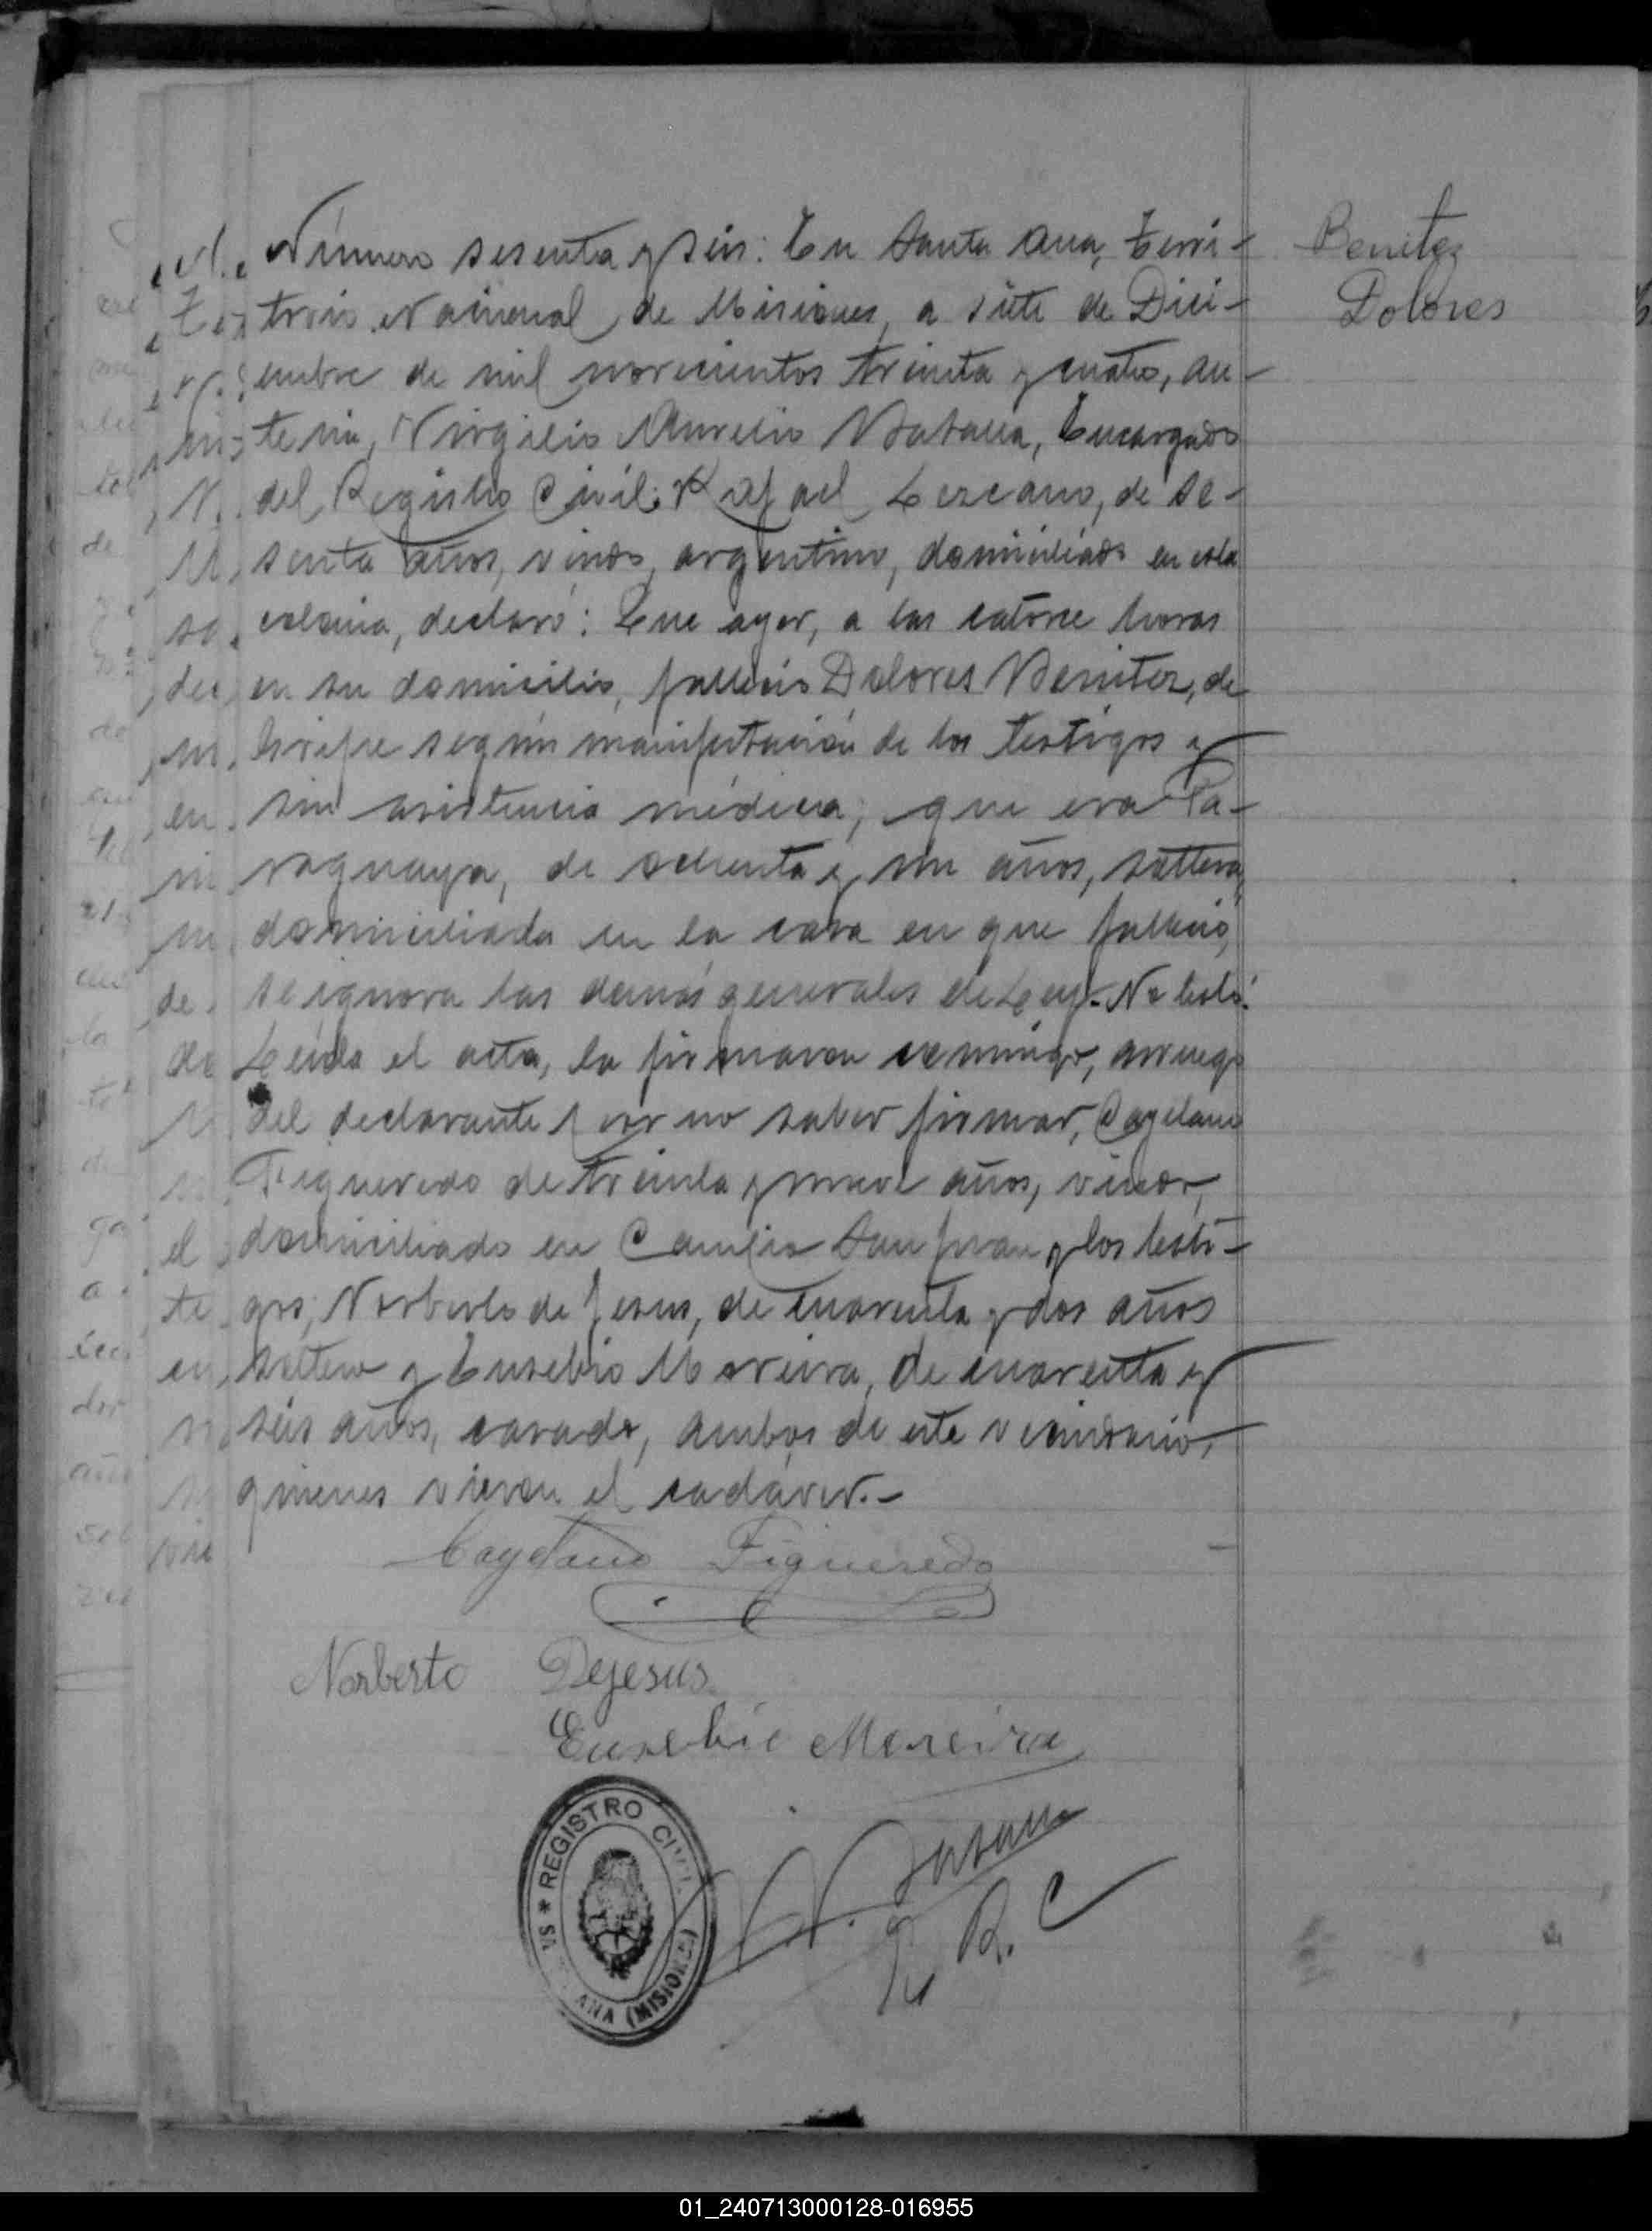 Benitez
Dolores
Número sesenta y seis: En Santa Ana, Terri-
torio Nacional de Misiones, a siete de Dici-
embre de mil novecientos treinta y cuatro, an-
te mi, Virgilio Aurelio Batalla, Encargado
del Registro Civil: Rafael Lezcano, de se-
senta años, viudo, argentino, domiciliado en esta
colonia, declaró: Que ayer, a las catorce horas
en su domicilio, falleció Dolores Benitez, de
Gripe según manifestación de los testigos y
sin asistencia médica; que era Pa-
raguaya, de ochenta y un años, soltera,
domiciliada en la casa en que falleció,
se ignora las demás generales de Ley.- No testó.
Leida el acta, la firmaron conmigo, a ruego
del declarante por no saber firmar, Cayetano
Figueredo de treinta y nueve años, viudo,
domiciliado en Campo San Juan y los testi-
gos; Norberto de Jesus, de cuarenta y dos años
soltero y Eusebio Moreira, de cuarenta y
seis años, casado, ambos de este vecindario,
quienes vieron el cadáver.-
Cayetano Figueredo
Norberto Dejesus
Eusebio Moreira
REGISTRO CIVIL
ANA (MISIONES)
R. C
01_240713000128-016955